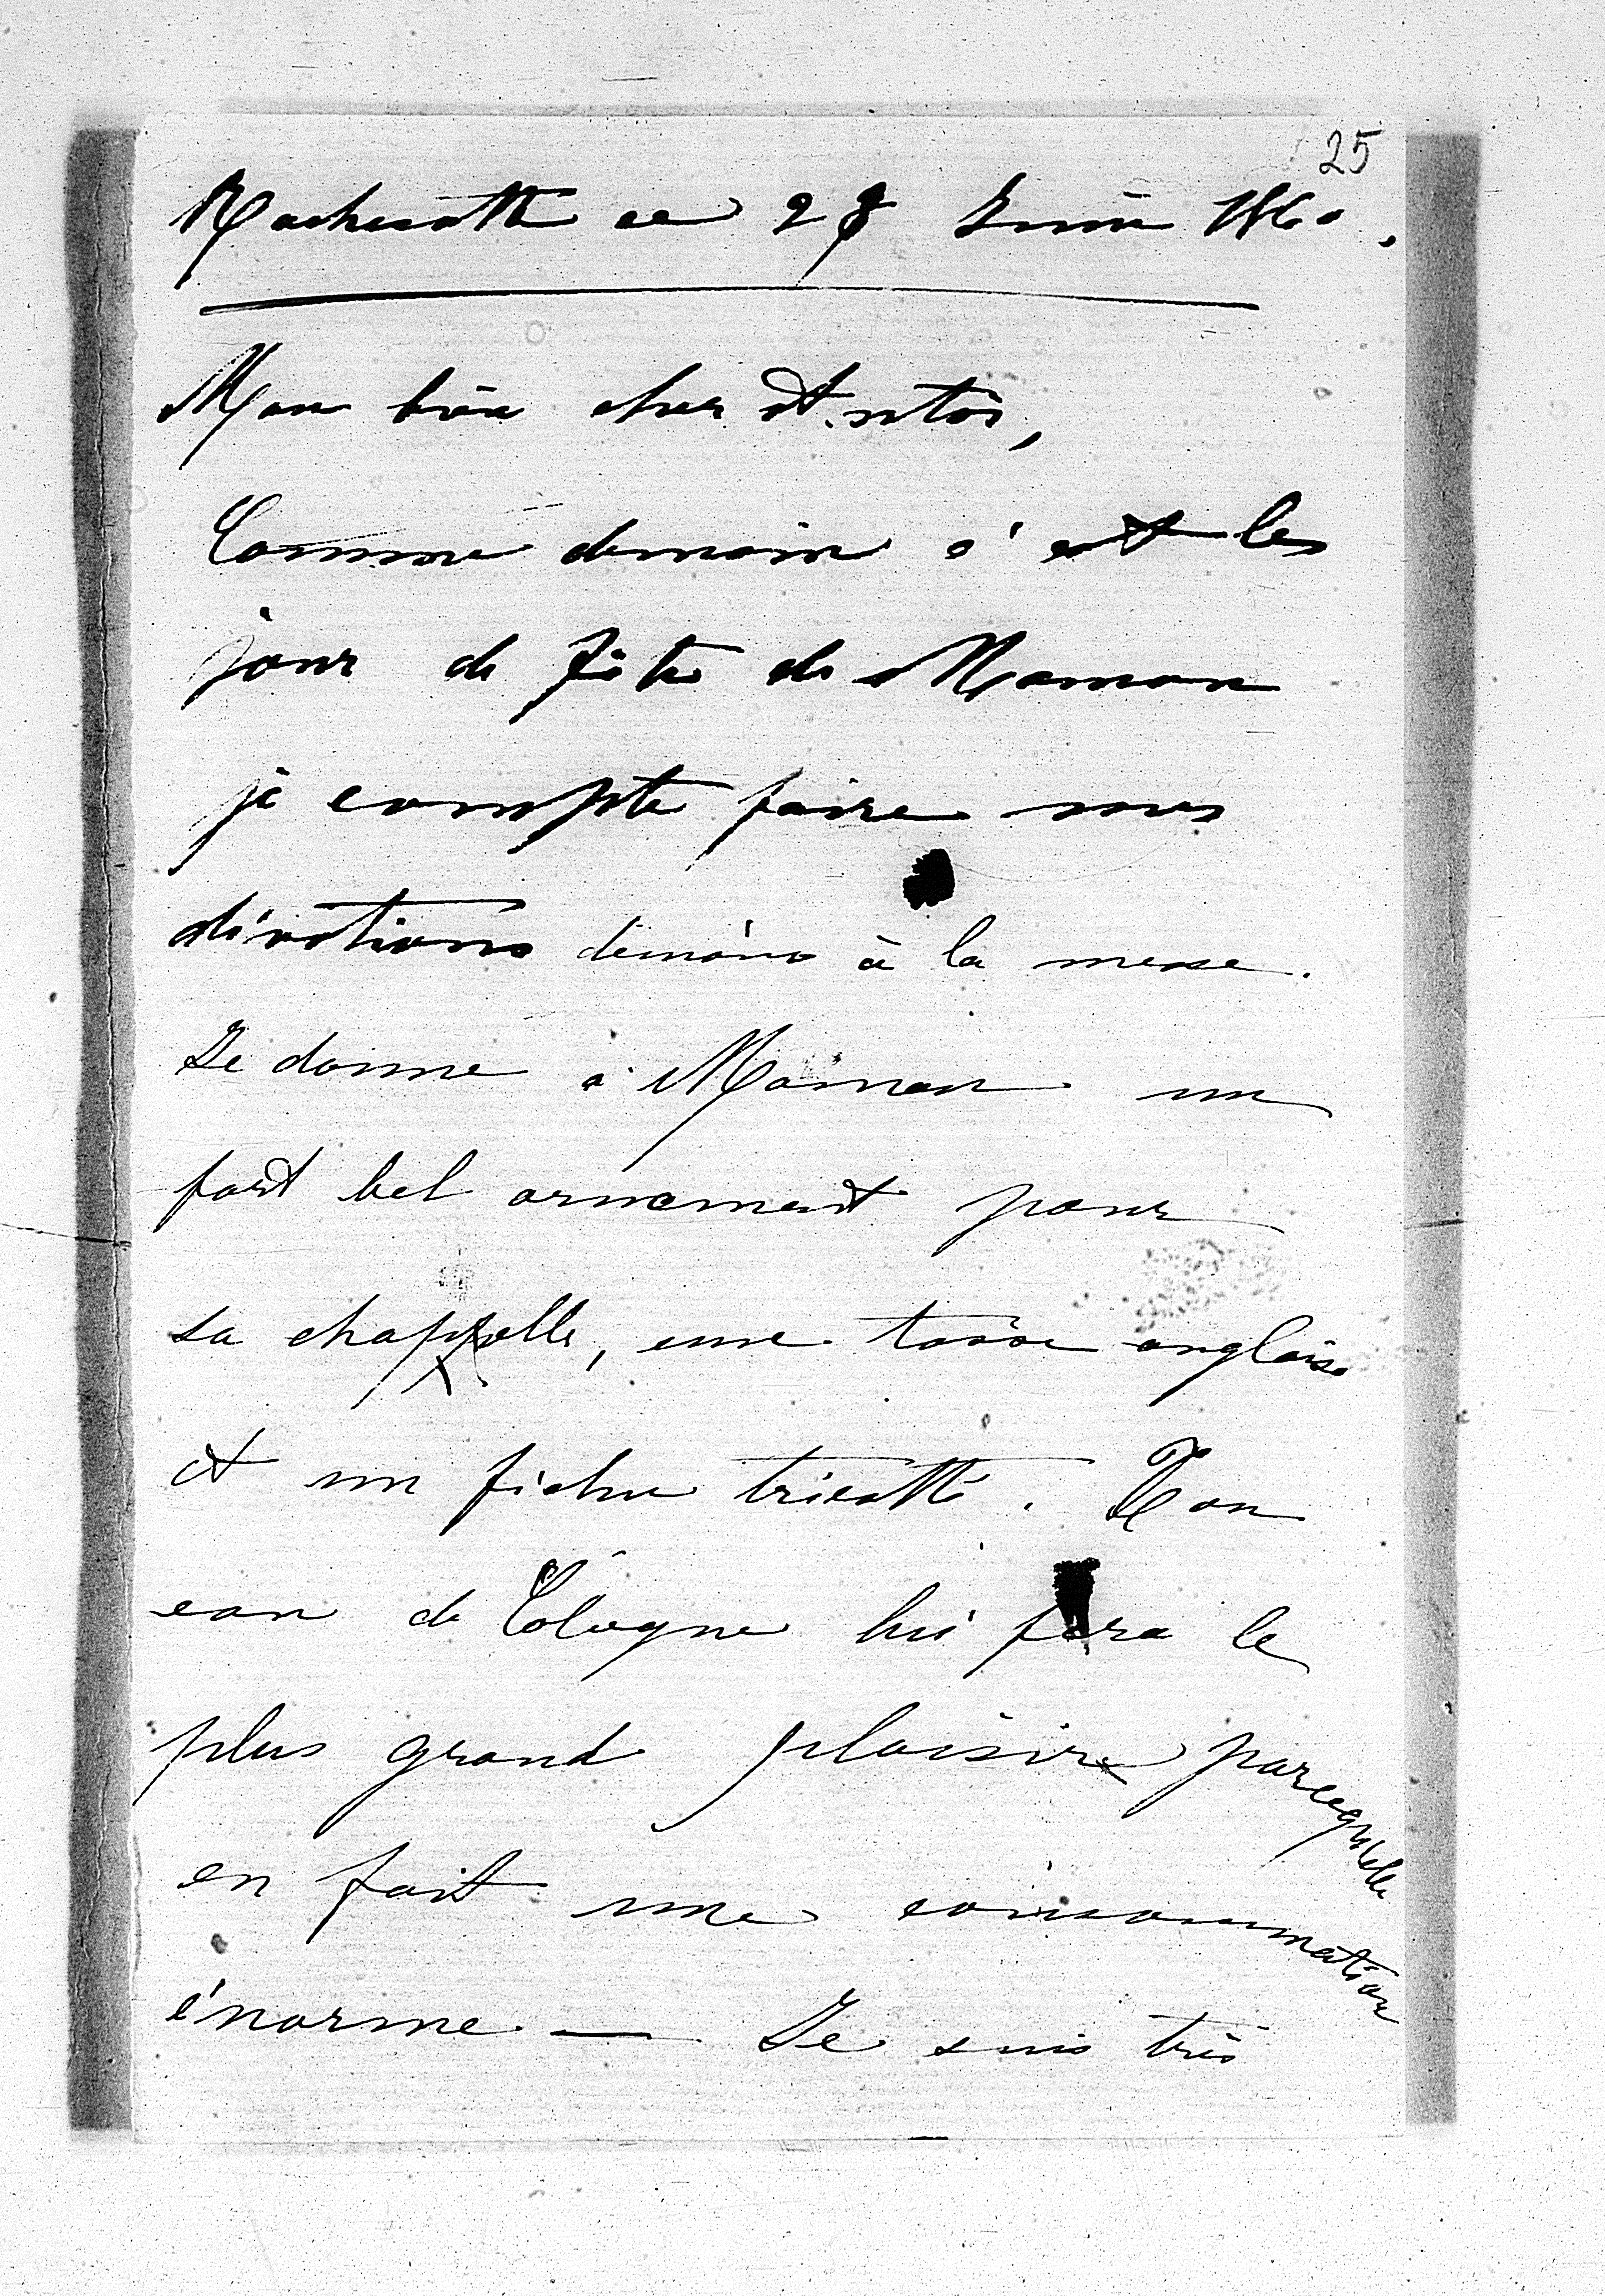 25
Rochecotte ce 28 Juin 1860.
Mon bien cher Antoi,
Comme demain c'est le
jour de fête de Maman
je compte faire mes
dévotions demain à la messe.
Je donne à Maman un
fort bel ornement pour
sa chappelle, une tasse anglaise
et un fichu tricotté. Ton
eau de Cologne lui fera le
plus grand plaisir parcequ'elle
en fait une consommation
énorme — Je suis très